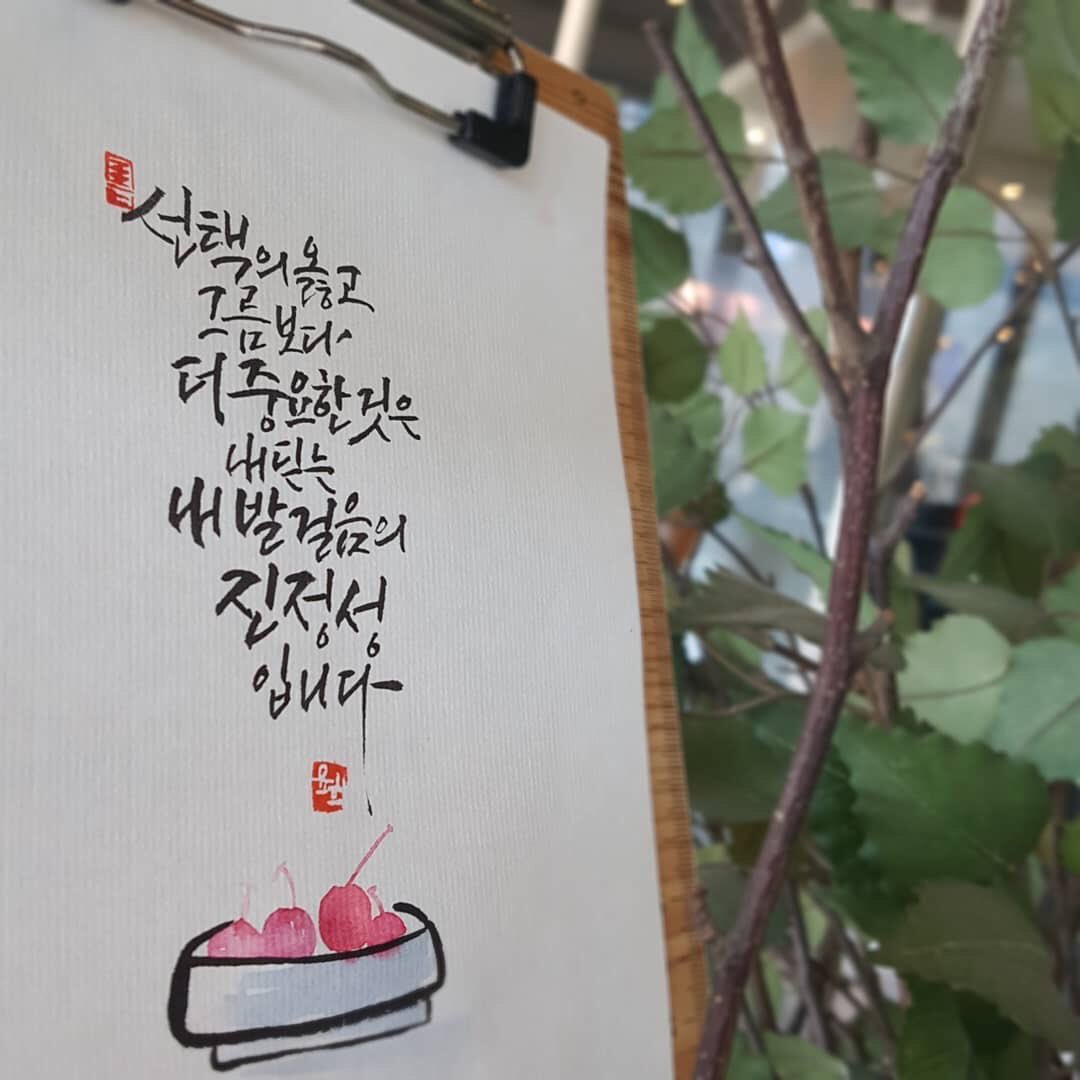 선택의 옳고
그름보다
더 중요한 것은
내딛는
내 발걸음의
진정성
입니다